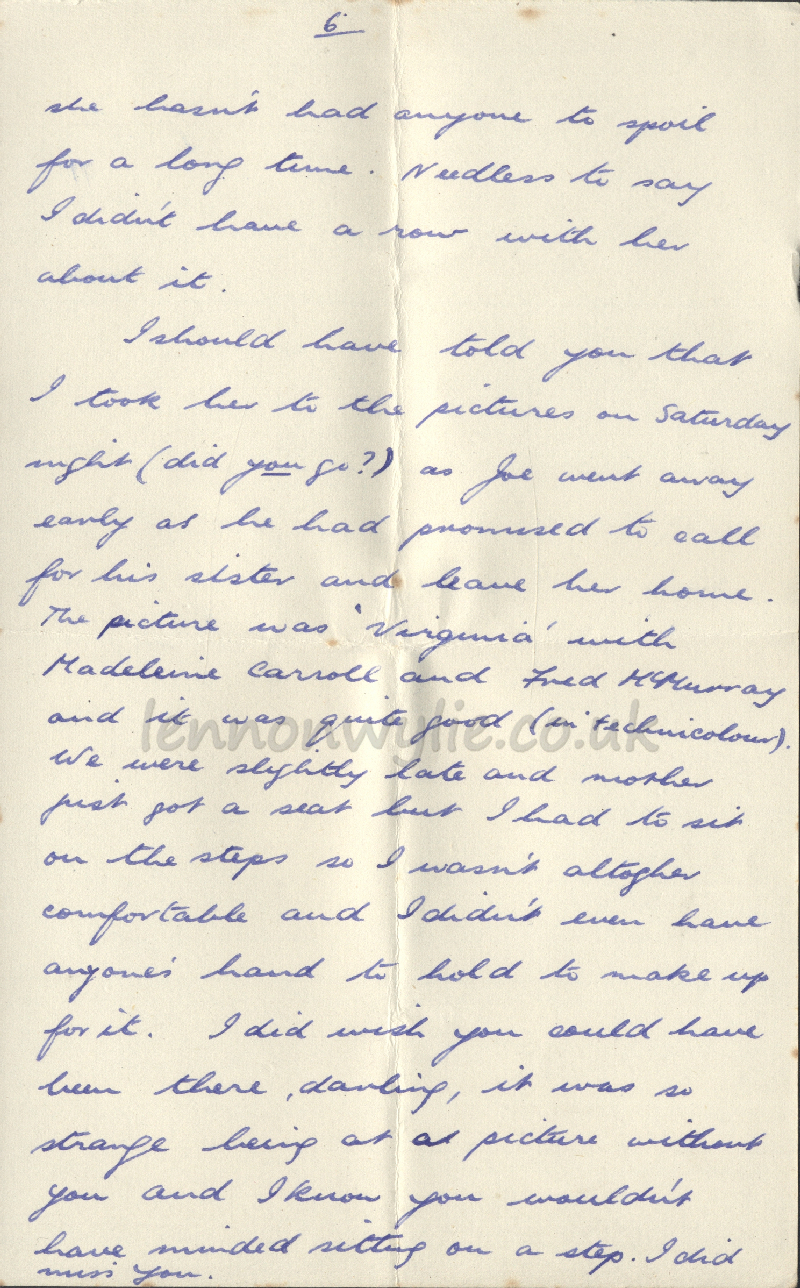 6
she hasn't had anyone to spoil
for a long time. Needless to say
I didn't have a row with her
about it.
I should have told you that
I took her to the pictures on Saturday
night (did you go?) as Joe went away
early as he had promised to call
for his sister and leave her home.
The picture was 'Virginia' with
Madeleine Carroll and Fred McMurray
and it was quite good (in technicolour).
lennonwylie.co.uk
We were slightly late and mother
just got a seat but I had to sit
on the steps so I wasn't altogher
comfortable and I didn't even have
anyone's hand to hold to make up
for it. I did wish you could have
been there, darling, it was so
strange being at a picture without
you and I know you wouldn't
have minded sitting on a step. I did
miss you.